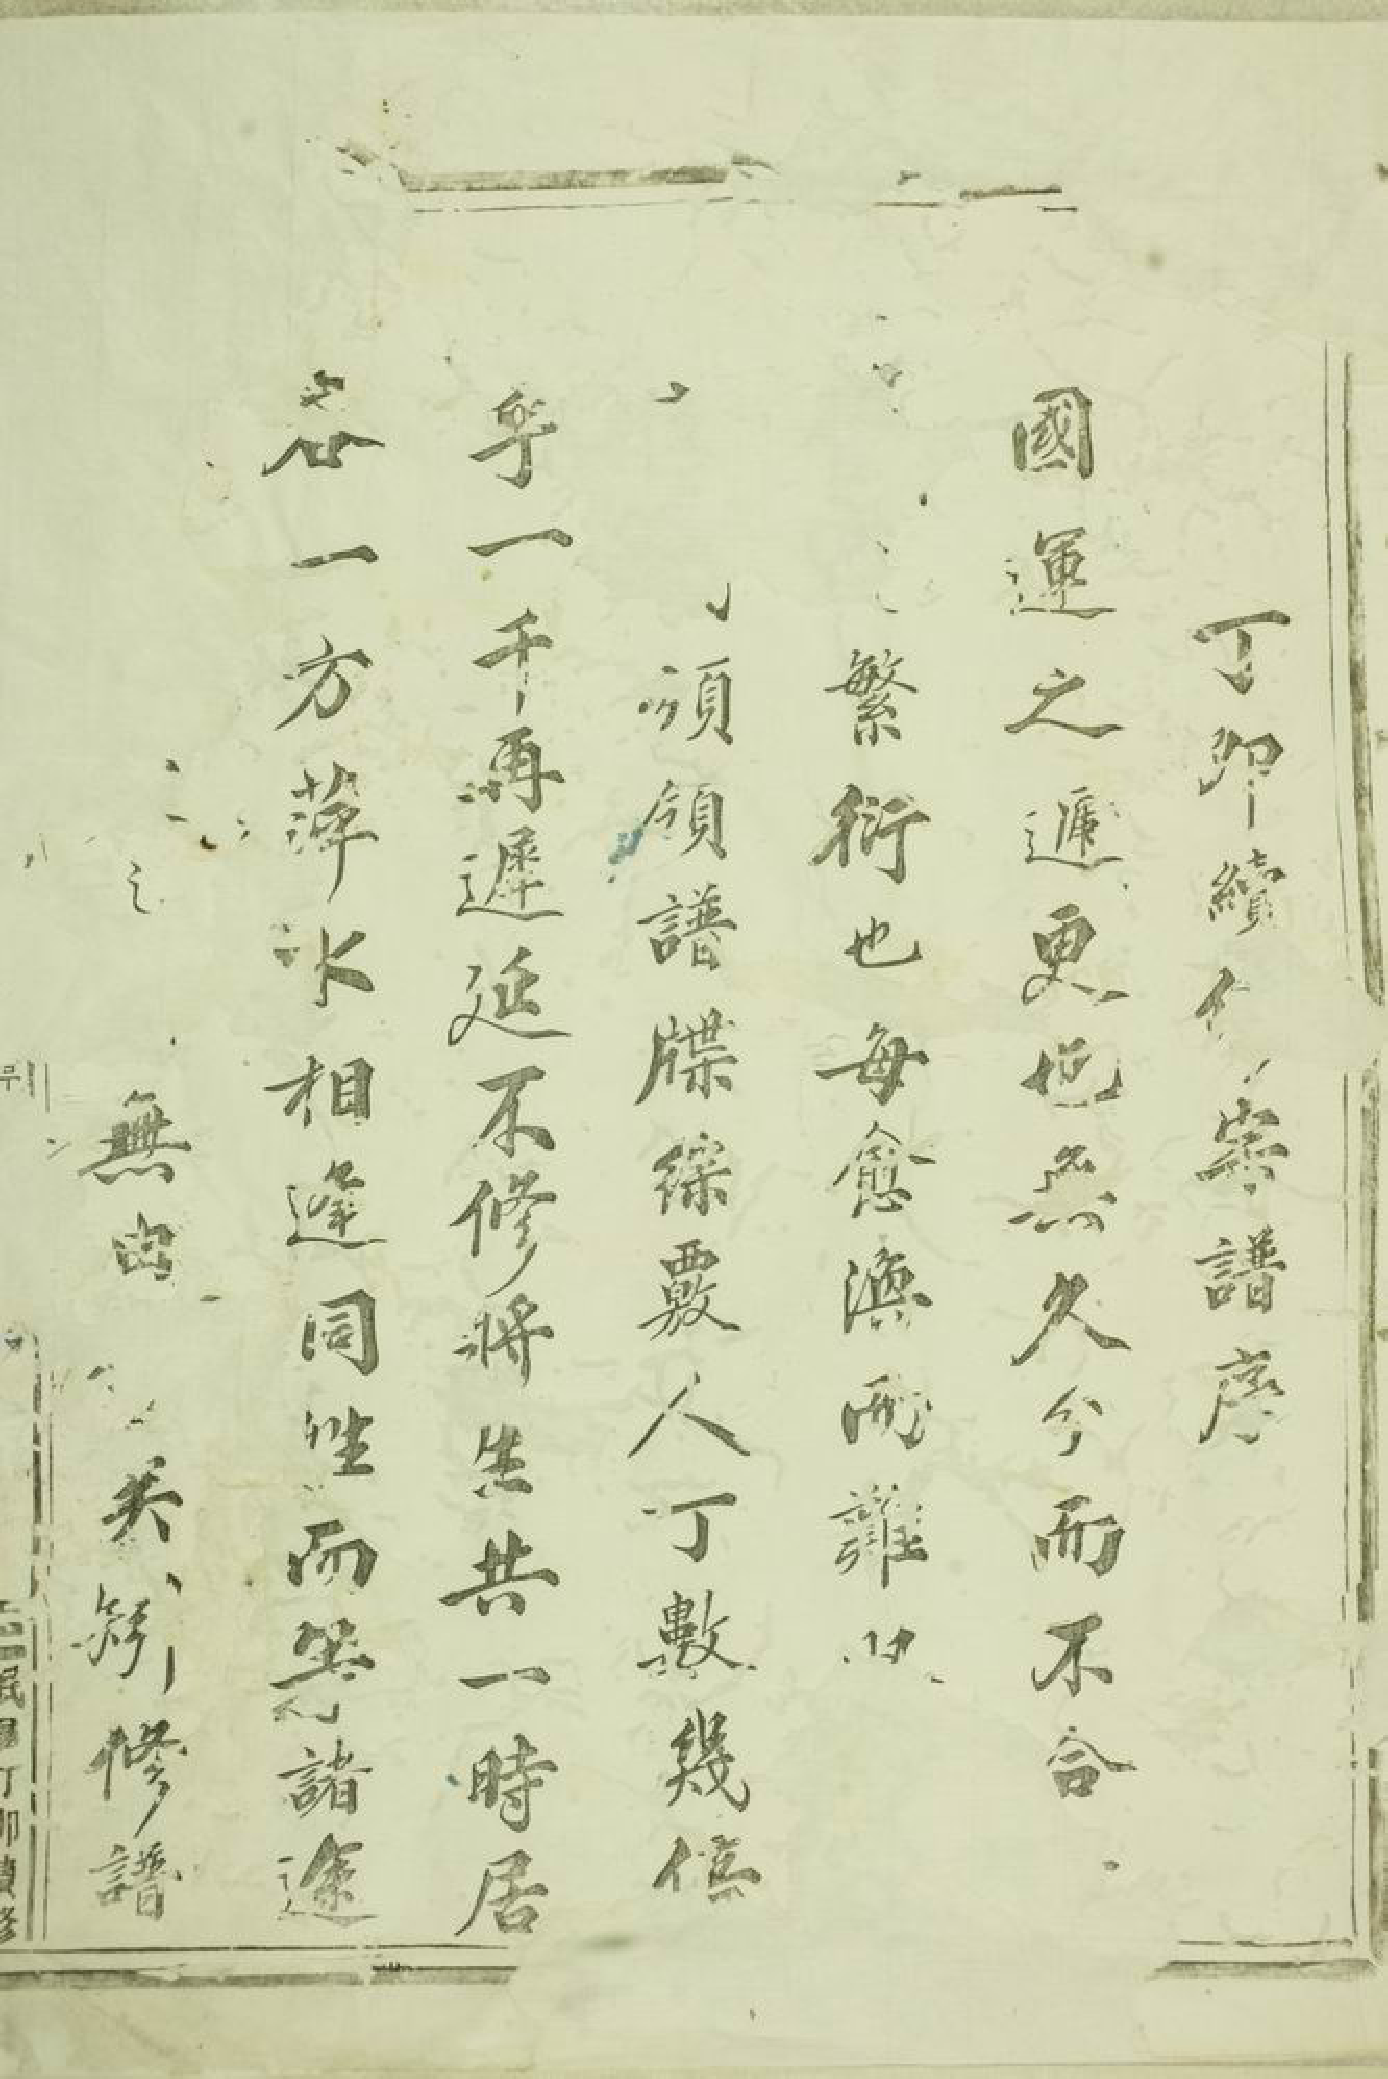 丁卯續修宗譜序
國運之遞更也無久分而不合
繁衍也每愈渙而難
須領譜牒綜覈人丁數幾倍
乎一千再遲延不修將生共一時居
各一方萍水相逢同姓而等諸途
無由 矣斯修譜
民國丁卯續修